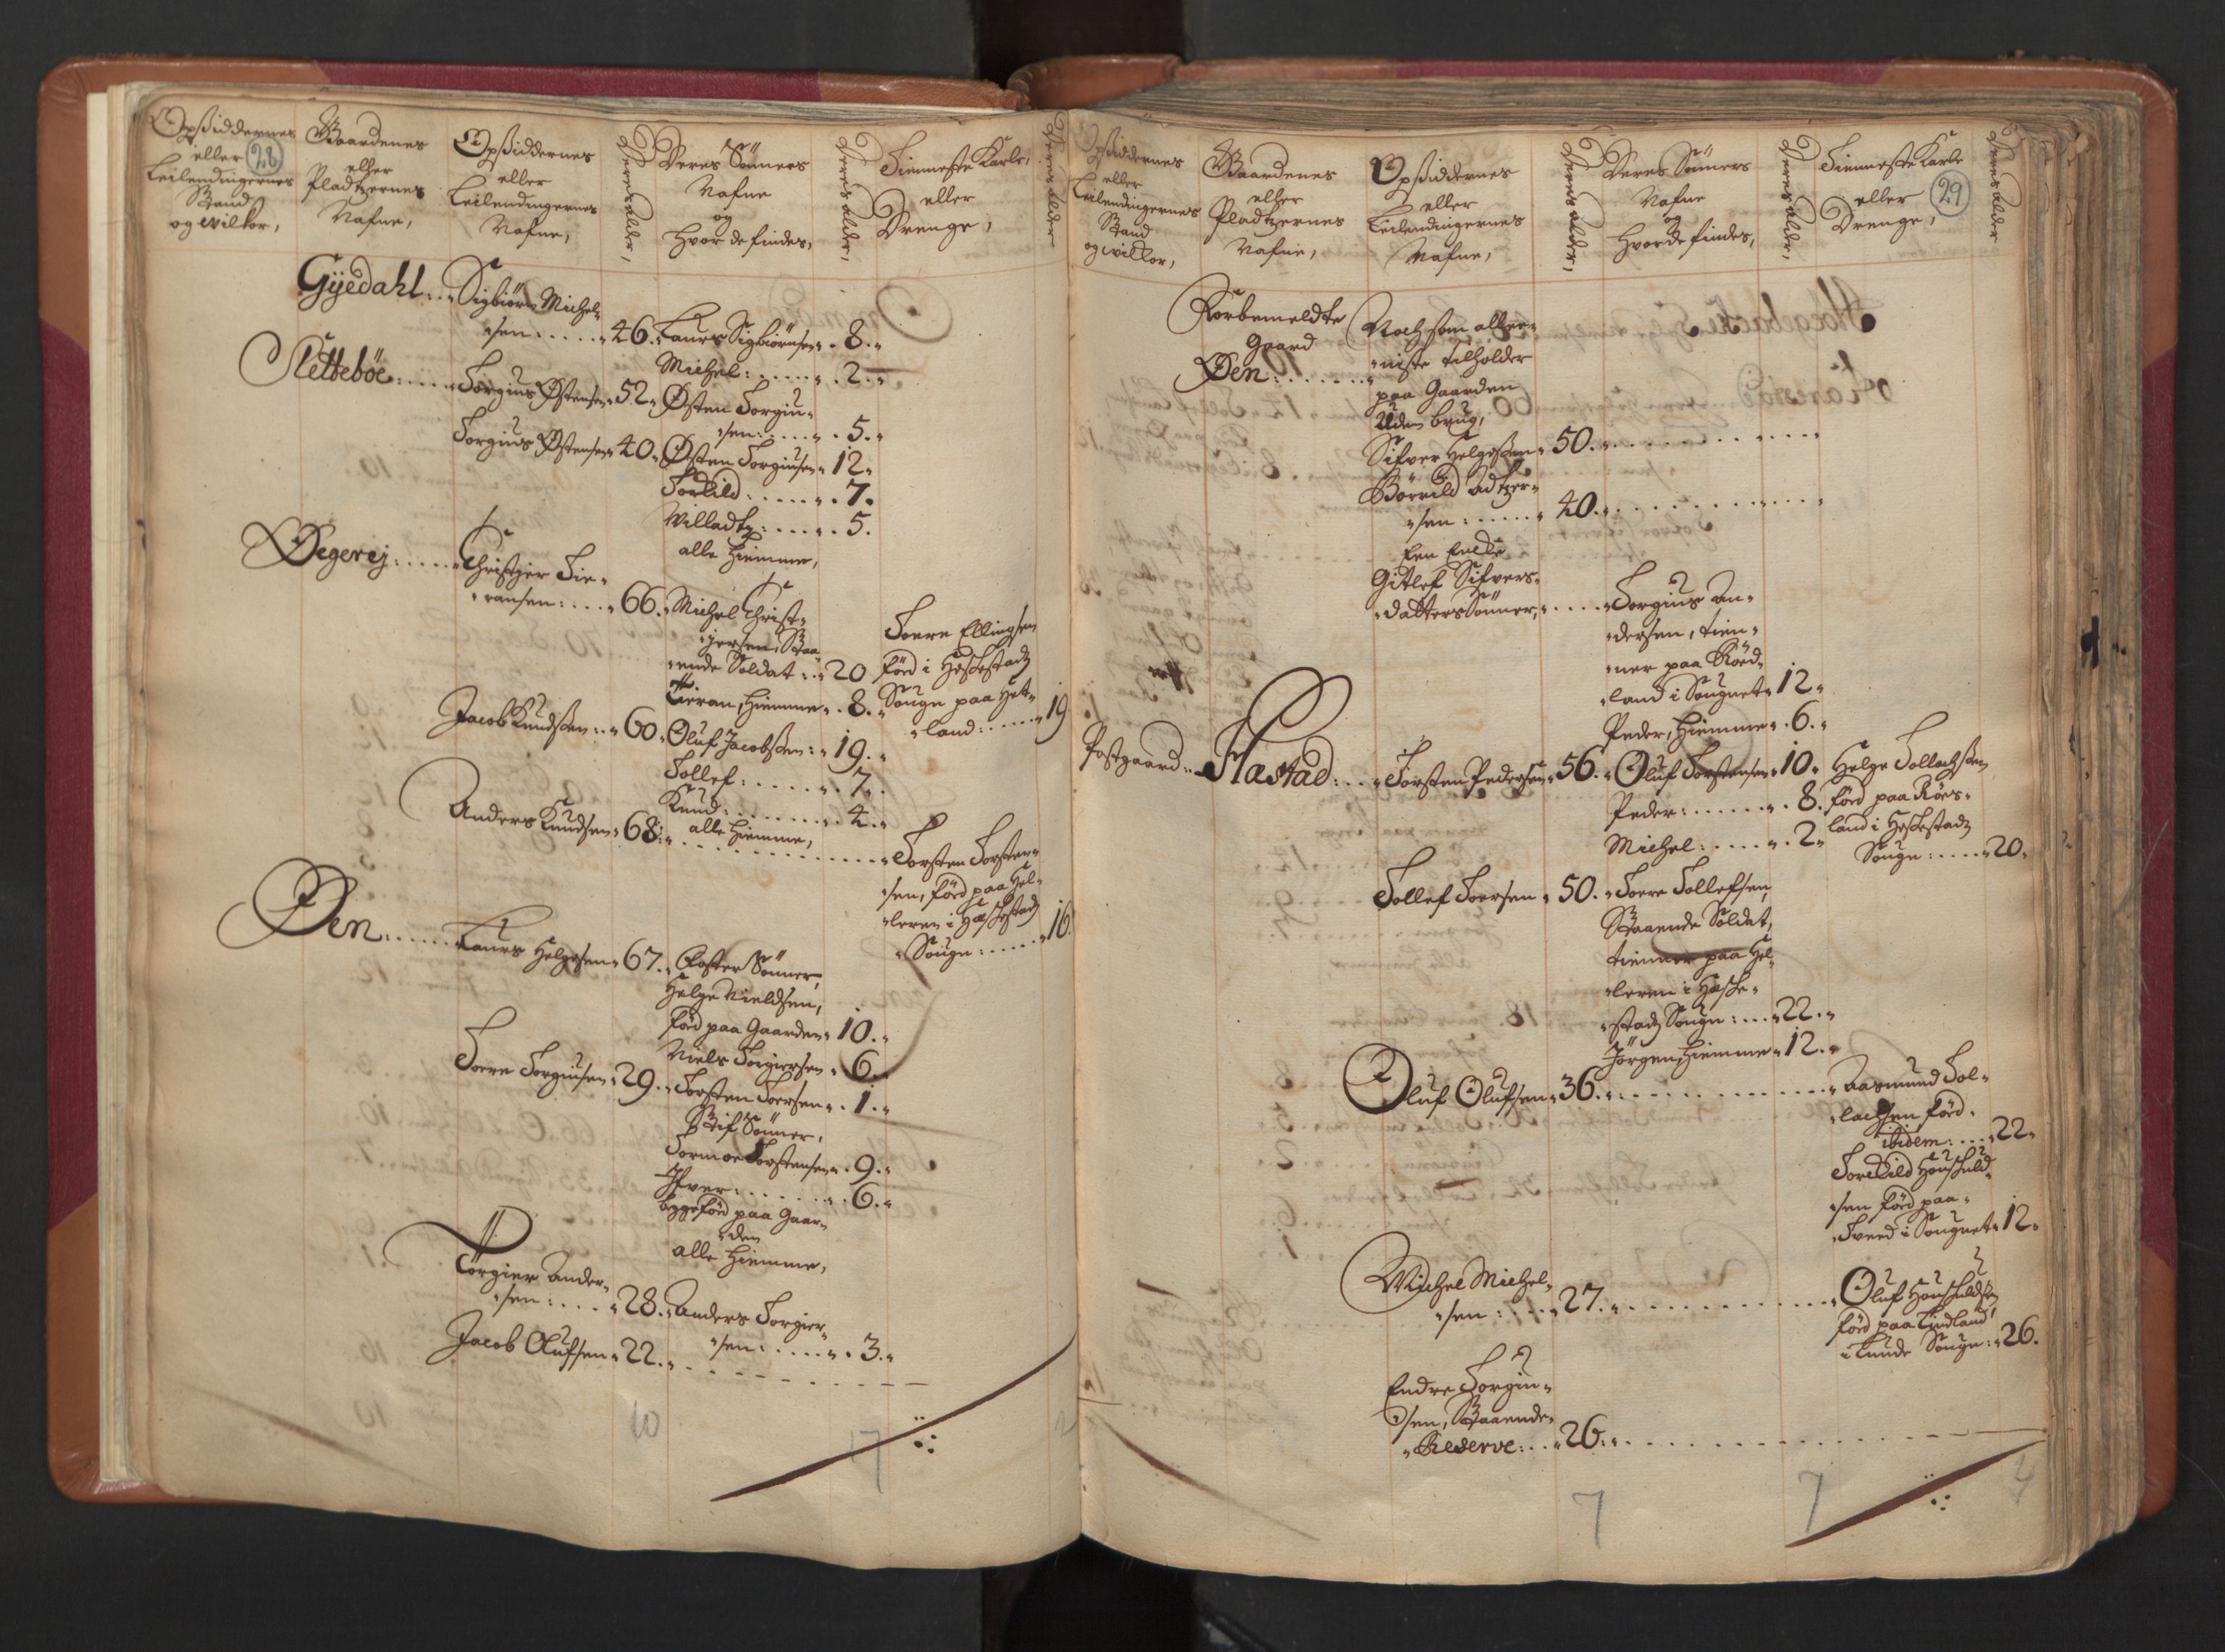 28
Opsiddernes
eller
Leilendingernes
Stand
og Wilkor,
Gaardenes
eller
Pladtzernes
Nafne,
Opsiddernes
eller
Leilendingernes
Nafne,
Deres alder,
Deres Sönners
Nafne
og
Hvor de findes,
Deres alder,
Tienneste Karle,
eller
Drenge,
Deres alder
Gyedahl:. Sigbiörn Michel-
sen:.... 46. Laurs Sigbiörnsen. 8.
Michel:..... 2.
Sletteböe:.... Torgius Østensen 52. Østen Torgiu-
sen:.... 5.
Torgius Østensen 40. Østen Torgiusen 12.
Torkild:.... 7.
Willadtz:.... 5.
alle hiemme,
Degerej:.... Christzier Tie-
ransen:... 66. Michel Christ-
zersen, Staa-
ende Soldat:. 20
Tieran, hiemme. 8.
Toere Ellingsen
föd i Heskestadtz
Sougn paa Het-
land:.... 19
Jacob Knudsen:. 60. Oluf Jacobsen:. 19.
Tollef:..... 7.
Knud:...... 4.
alle hiemme,
Anders Knudsen 68.
Torsten Torsten-
sen, föd paa Hel-
leren i Heskestadtz
Sougn:..... 16.
Øen:.... Laurs Helgesen 67. Foster Sönner,
Helge Nieldsen,
föd paa Gaarden 10.
Niels Torgiersen. 6.
Toere Torgiusen 29. Torsten Toersen. 1.
Stif Sönner,
Tormoe Torstensen. 9.
Ifver:...... 6.
begge föd paa Gaar-
den
alle hiemme,
Törgier Ander-
sen:.... 28. Anders Torgier-
sen:..... 3.
Jacob Olufsen 22.
10
17
29
Opsiddernes
eller
Leilendingernes
Stand
og Wilkor,
Gaardenes
eller
Pladtzernes
Nafne,
Opsiddernes
eller
Leilendingernes
Nafne,
Deres alder,
Deres Sönners
Nafne
og
Hvor de findes,
Deres alder,
Tienneste Karle
eller
Drenge,
Deres alder
Forbemeldte
Gaard
Øen:......
Noch som aller-
niste tilholder
paa Gaarden
Uden brug,
Sifver Helgesen 50.
Börrild Adtzer-
sen:..... 40.
Een Encke
Gitlef Sifvers-
datters Sönner, .... Torgius An-
dersen, tien-
ner paa Röed-
land i Sougnet 12.
Peder, hiemme. 6.
Postgaard:. Hæstad:... Torsten Pedersen 56. Oluf Torstensen 10.
Peder:...... 8.
Michel:.... 2.
Helge Tollachsen
föd paa Rörs-
land i Heskestadtz
Sougn:.... 20.
Tollef Toersen 50. Toere Tollefsen,
Staaende Soldat,
tienner paa Hel-
leren i Heske-
stadtz Sougn:... 22.
Jörgen, hiemme 12.
Oluf Olufsen 36.
Aasmund Tol-
lachsen föd
ibidem:... 22.
Torckild Houskuld-
sen föd paa
Tveed i Sougnet 12.
Michel Michel-
sen:.... 27.
Oluf Houskuldsen
föd paa Lindland
i Lunde Sougn:. 26.
Endre Torgiu-
sen, Staaende
Reserve:.. 26.
7
7
4